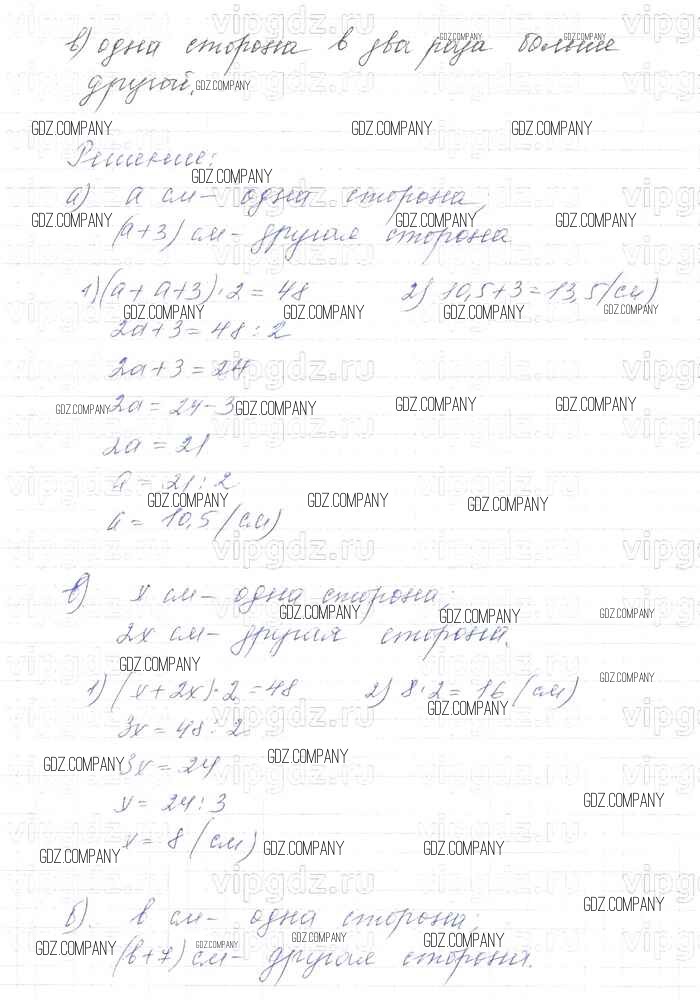 в) одна сторона в два раза больше
другой.
Решение:
а) а см – одна сторона,
(а+3) см – другая сторона
1) (а+а+3)·2=48 2) 10,5+3=13,5(см)
2а+3=48:2
2а+3=24
2а=24-3
2а=21
а=21:2
а=10,5(см)
в) х см – одна сторона;
2х см – другая сторона.
1) (х+2х)·2=48 2) 8·2=16(см)
3х=48:2
3х=24
х=24:3
х=8(см)
б). в см – одна сторона;
(в+7) см – другая сторона.